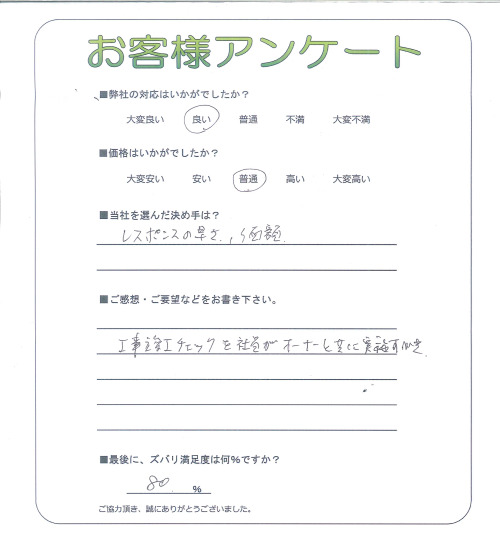 お客様アンケート
■弊社の対応はいかがでしたか?
大変良い 良い 普通 不満 大変不満
■価格はいかがでしたか?
大変安い 安い 普通 高い 大変高い
■当社を選んだ決め手は?
レスポンスの早さ、価額
■ご感想・ご要望などをお書き下さい。
工事竣工チェックを社員がオーナーと共に実施すべき
■最後に、ズバリ満足度は何%ですか?
80 %
ご協力頂き、誠にありがとうございました。